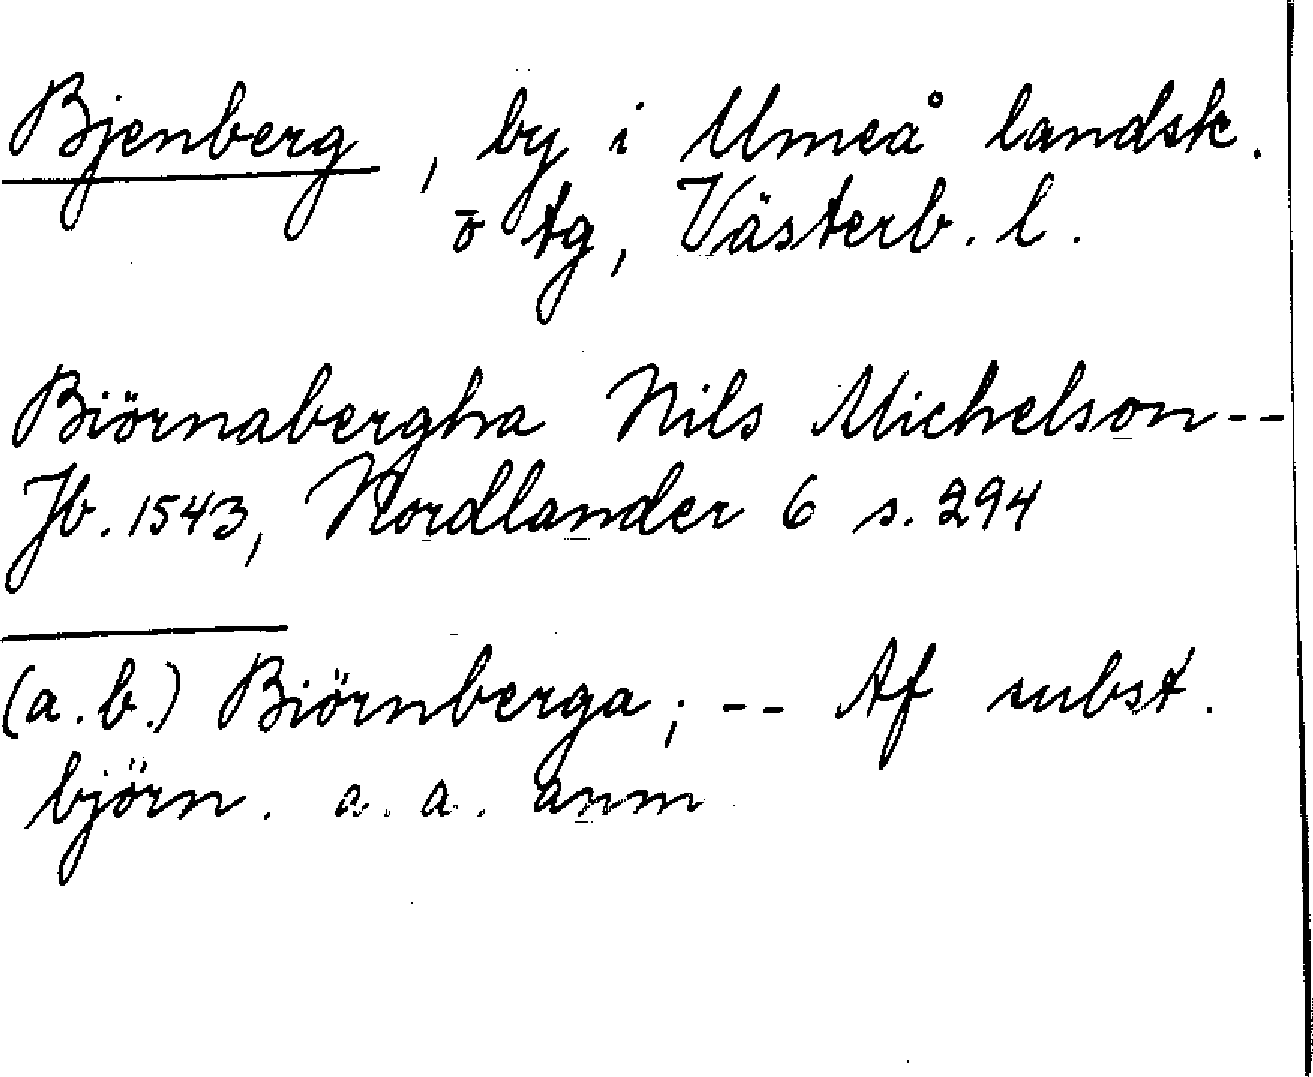 Bjenberg, by i Umeå landsk.
o tg, Västerb. l.
Biörnabergha Nils Michelson--
Jb. 1543, Nordlander 6 s. 294
(a.b.) Biörnberga; -- Af subst.
björn. a. a. anm